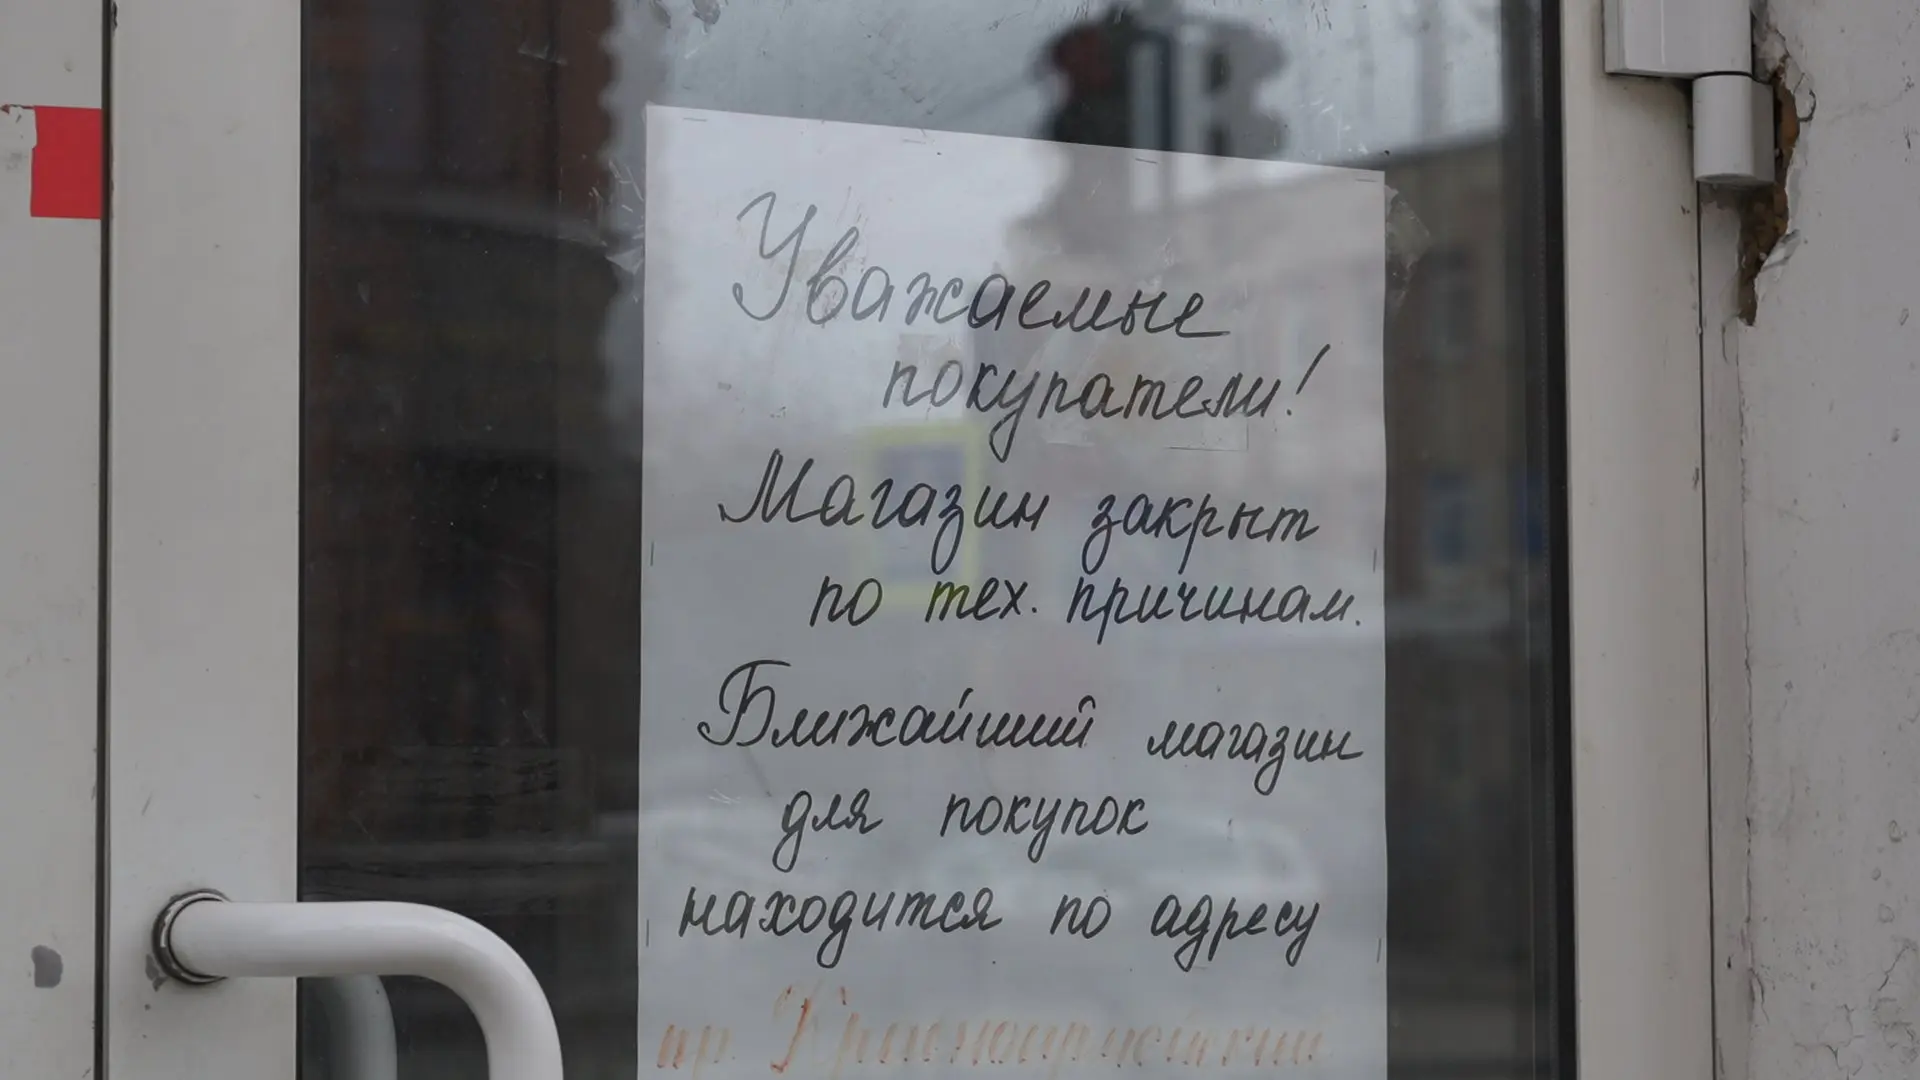 Уважаемые
покупатели!
Магазин закрыт
по тех. причинам.
Ближайший магазин
для покупок
находится по адресу
пр.